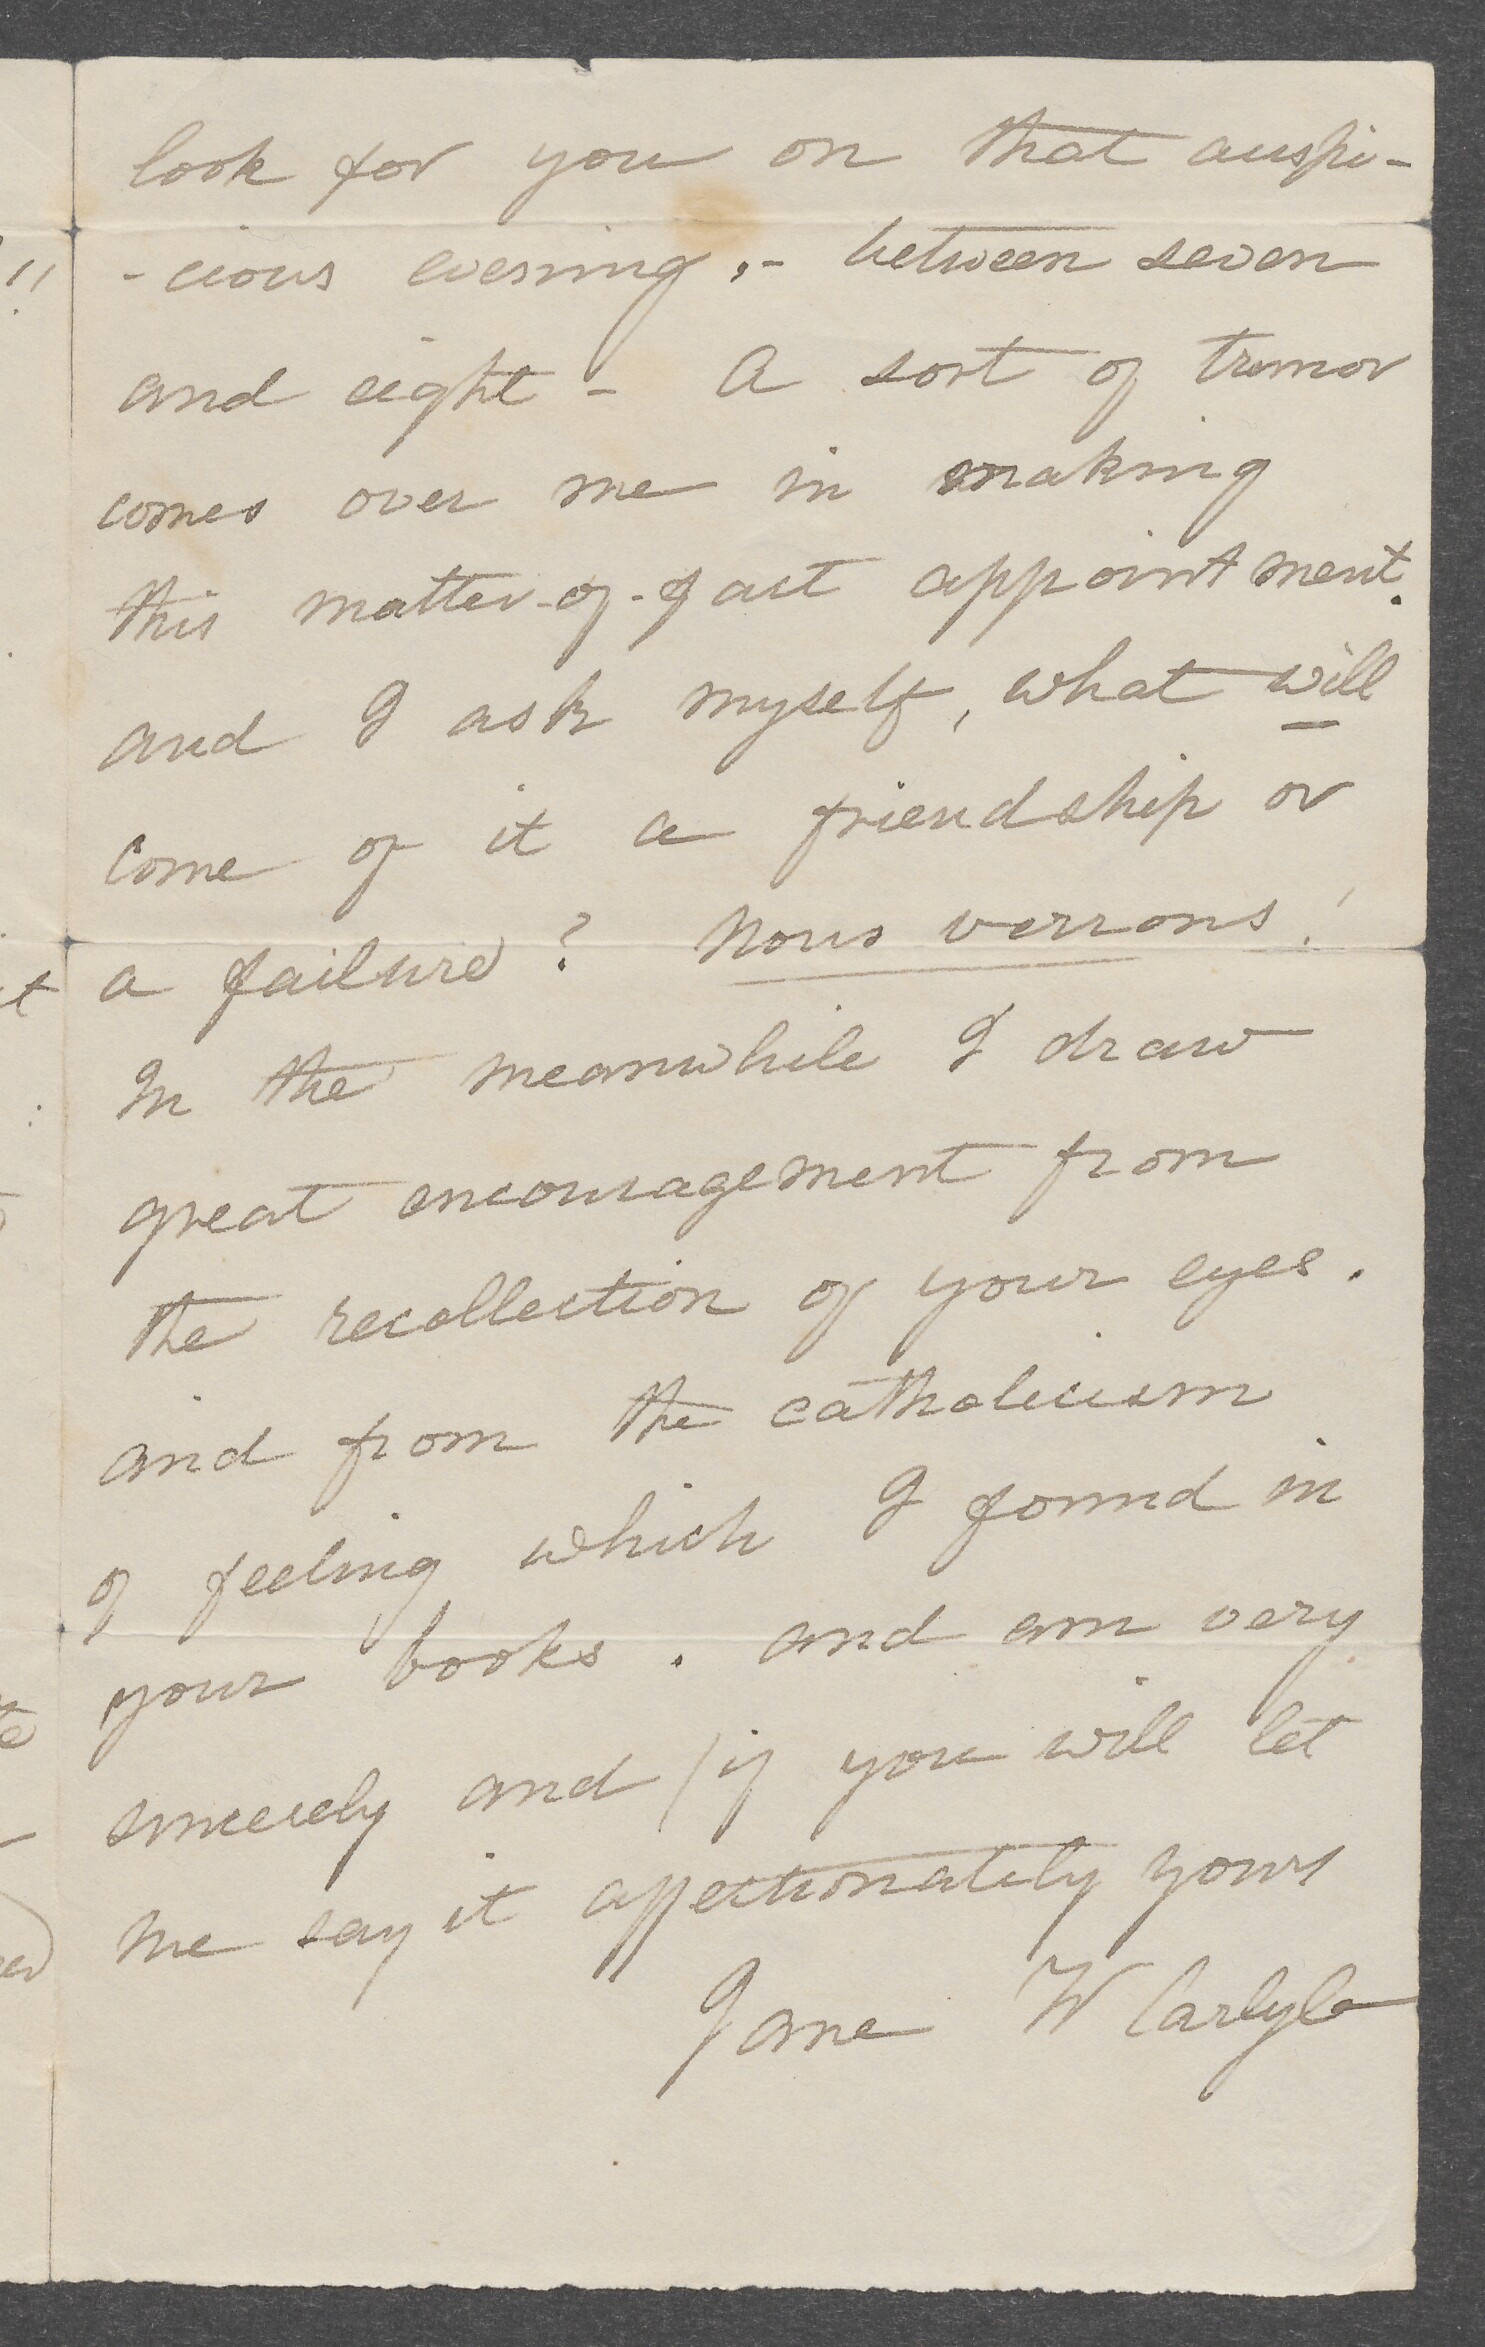 look for you on that auspi-
-cious evening,- between seven
and eight - A sort of tremor
comes over me in making
this matter-of-fact appointment.
and I ask myself, what will
come of it a friendship or
a failure? Nous verrons!
In the meanwhile I draw
great encouragement from
the recollection of your eyes.
and from the catholicism
of feeling which I found in
your books. and am very
sincerely and (if you will let
me say it affectionately yours
Jane W Carlyle